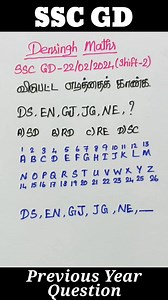 SSC GD
Densingh Maths
SSC GD-22/02/2021, (Shift-2)
விடுபட்ட எழுத்தைக் காண்க.
DS, EN, GJ, JG, NE, ?
A) SD B) RD C) RE D) SC
1 2 3 4 5 6 7 8 9 10 11 12 13
A B C D E F G H I J K L M
N O P Q R S T U V W X Y Z
14 15 16 17 18 19 20 21 22 23 24 25 26
DS, EN, GJ, JG, NE, __
Previous Year
Question